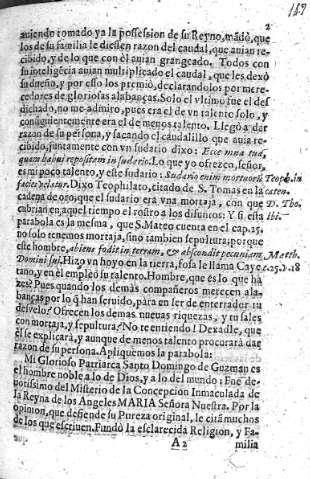 169
2
auiendo tomado ya la possession de su Reyno, mãdò, que
los de su familia le diessen razon del caudal, que auian re-
cibido, y de lo que con èl auian grangeado. Todos con
su inteligẽcia auian multiplicado el caudal, que les dexò
su dueño, y por esso los premiò, declarandolos por mere-
cedores de gloriosas alabanças. Solo el vltimo fue el des
dichado, no me admiro, pues era el de vn talento solo, y
consiguientemente era el de menos talento. Llegò a dar
razan de su persona, y sacando el caudalillo que auia re-
cibido, juntamente con vn sudario dixo: Ecce mna tua,
quam habui repositam in sudario. Lo que yo ofrezco, señor,
es mi poco talento, y este sudario: Sudario enim mortuorũ Teoph. in
facies velatur. Dixo Teophilato, citado de S. Tomas en la caten.
cadena de oro, que el sudario erà vna mortaja, con que D. Tho.
cubrian en aquel tiempo el rostro a los difuntos: Y si esta ibi.
parabola es la mesma, que S. Mateo cuenta en el cap. 25.
no solo tenemos mortaja, sino tambien sepultura, porque
este hombre, Abiens fodit in terram, & abscondit pecuniam Matth.
Domini sui. Hizo vn hoyo en la tierra, fosa le llama Caye- c. 25. v. 18
tano, y en el empleò su talento. Hombre, que es lo que ha
zes? Pues quando los demàs compañeros merecen ala-
banças por lo q̃ han seruido, paràn en ser de enterrador tu
desvelo? Ofrecen los demas nueuas riquezas, y tu sales
con mortaja, y sepultura? No te entiendo! Dexadle, que
èl se explicarà, y aunque de menos talento procurarà dar
razon de su persona. Apliquemos la parabola:
Mi Glorioso Patriarca Santo Domingo de Guzman es
el hombre noble a lo de Dios, y a lo del mundo: Fue de-
uotissimo del Misterio de la Concepcion Inmaculada de
la Reyna de los Angeles MARIA Señora Nuestra. Por la
opinion, que defiende su Pureza original, le citã muchos
de los que escriuen. Fundò la esclarecida Religion, y Fa-
A 2
milia